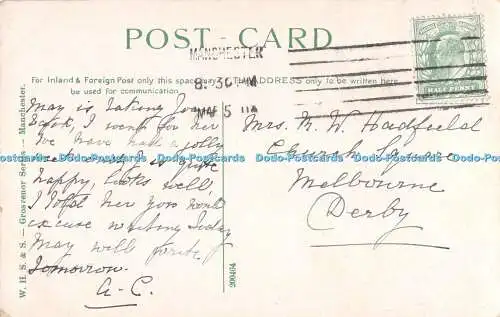 POST - CARD
MANCHESTER
8.30 PM
MAR 5 11
HALF PENNY
For Inland & Foreign Post only this space may
be used for communication.
THE ADDRESS only to be written here
W. H. S. & S. — Grosvenor Series — Manchester.
May is taking
I went for her
We have had a jolly
happy, looks well,
I told her you would
excuse writing today
May will write
Tomorrow.
a-C.
200404
Mrs. N. W. Hadfield
Church Square
Melbourne
Derby
Dodo-Postcards Dodo-Postcards Dodo-Postcards Dodo-Postcards Dodo-Postcards